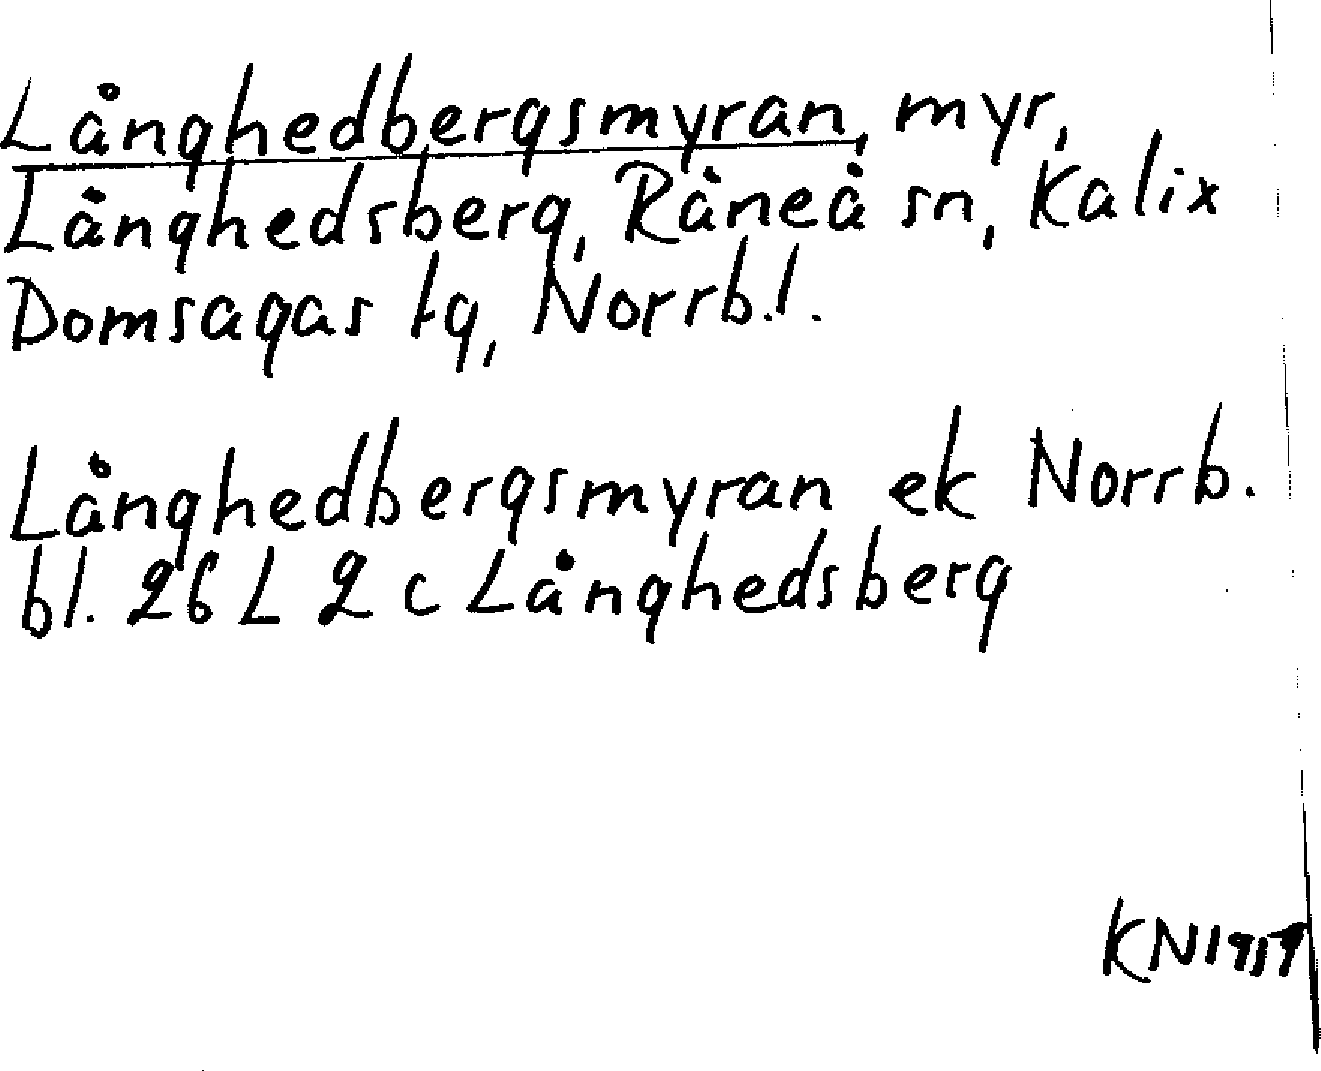 Långhedbergsmyran, myr,
Långhedsberg, Råneå sn, Kalix
Domsagas tg, Norrb.l.
Långhedbergsmyran ek Norrb.
bl. 26 L 2 c Långhedsberg